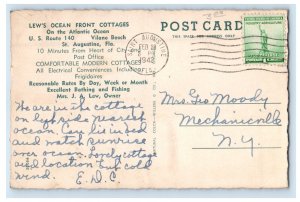 LEW'S OCEAN FRONT COTTAGES
On the Atlantic Ocean
U. S. Route 140 Vilano Beach
St. Augustine, Fla.
10 Minutes From Heart of City
Post Office
COMFORTABLE MODERN COTTAGES
All Electrical Conveniences Including
Frigidaires
Reasonable Rates By Day, Week or Month
Excellent Bathing and Fishing
Mrs. J. A. Lew, Owner
We are in the cottage
on hyside nearest
ocean. Can lie in bed
and watch sunrise
over ocean. Lovely cottage
and location but cold
wind.
E.D.C.
POST CARD
SAINT AUGUSTINE
FEB 28
1942
FLA.
Mrs. Geo Moody
Mechanicville
N.Y.